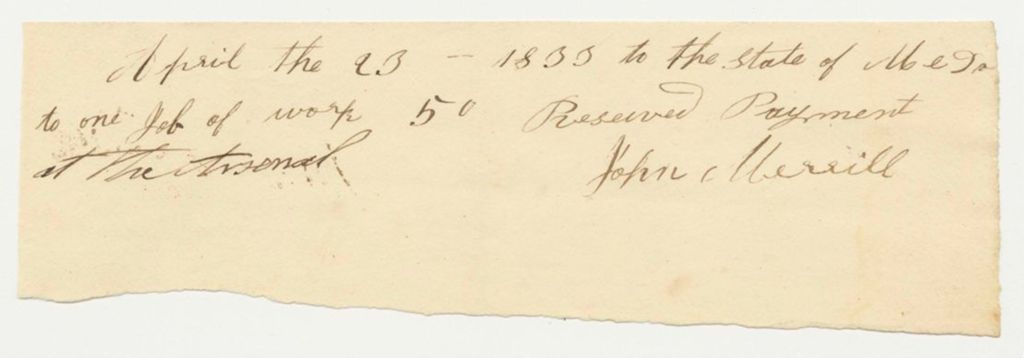 April the 23 - 1833 to the state of Me Do
to one Job of work 50 Reseived Payment
at the Arsenal John Merrill